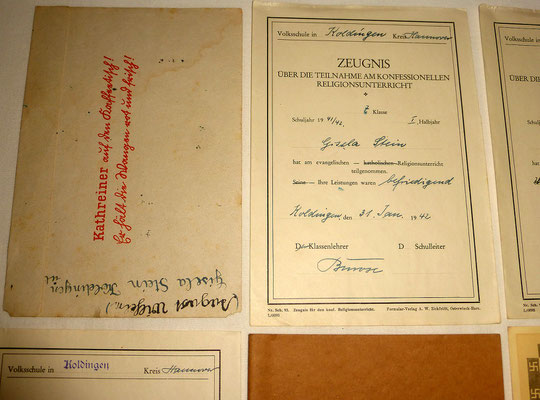 Kathreiner auf den Kaffeetisch!
Er hält die Wangen rot und frisch!
Gisela Stein Koldingen
Volksschule in Koldingen Kreis Hannover
ZEUGNIS
ÜBER DIE TEILNAHME AM KONFESSIONELLEN
RELIGIONSUNTERRICHT
Schuljahr 1941/42 Klasse I Halbjahr
Gisela Stein
hat am evangelischen — katholischen Religionsunterricht
teilgenommen.
Seine — Ihre Leistungen waren befriedigend
Koldingen, den 31. Jan. 1942
Klassenlehrer D Schulleiter
Nr. Sch. 95. Zeugnis für den konf. Religionsunterricht. Formular-Verlag A. W. Zickfeldt, Osterwieck-Harz.
ÜBER DIE
Volksschule in Koldingen Kreis Hannover